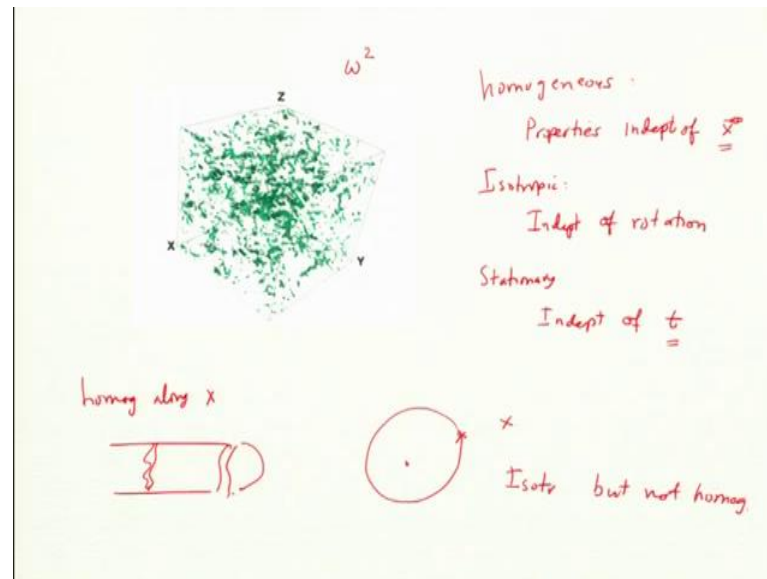 ω²
Z
X
Y
homogeneous.
Properties indept of x
Isotropic:
Indept of rotation
Stationary
Indept of t
homog along x
x
Isotr but not homog.